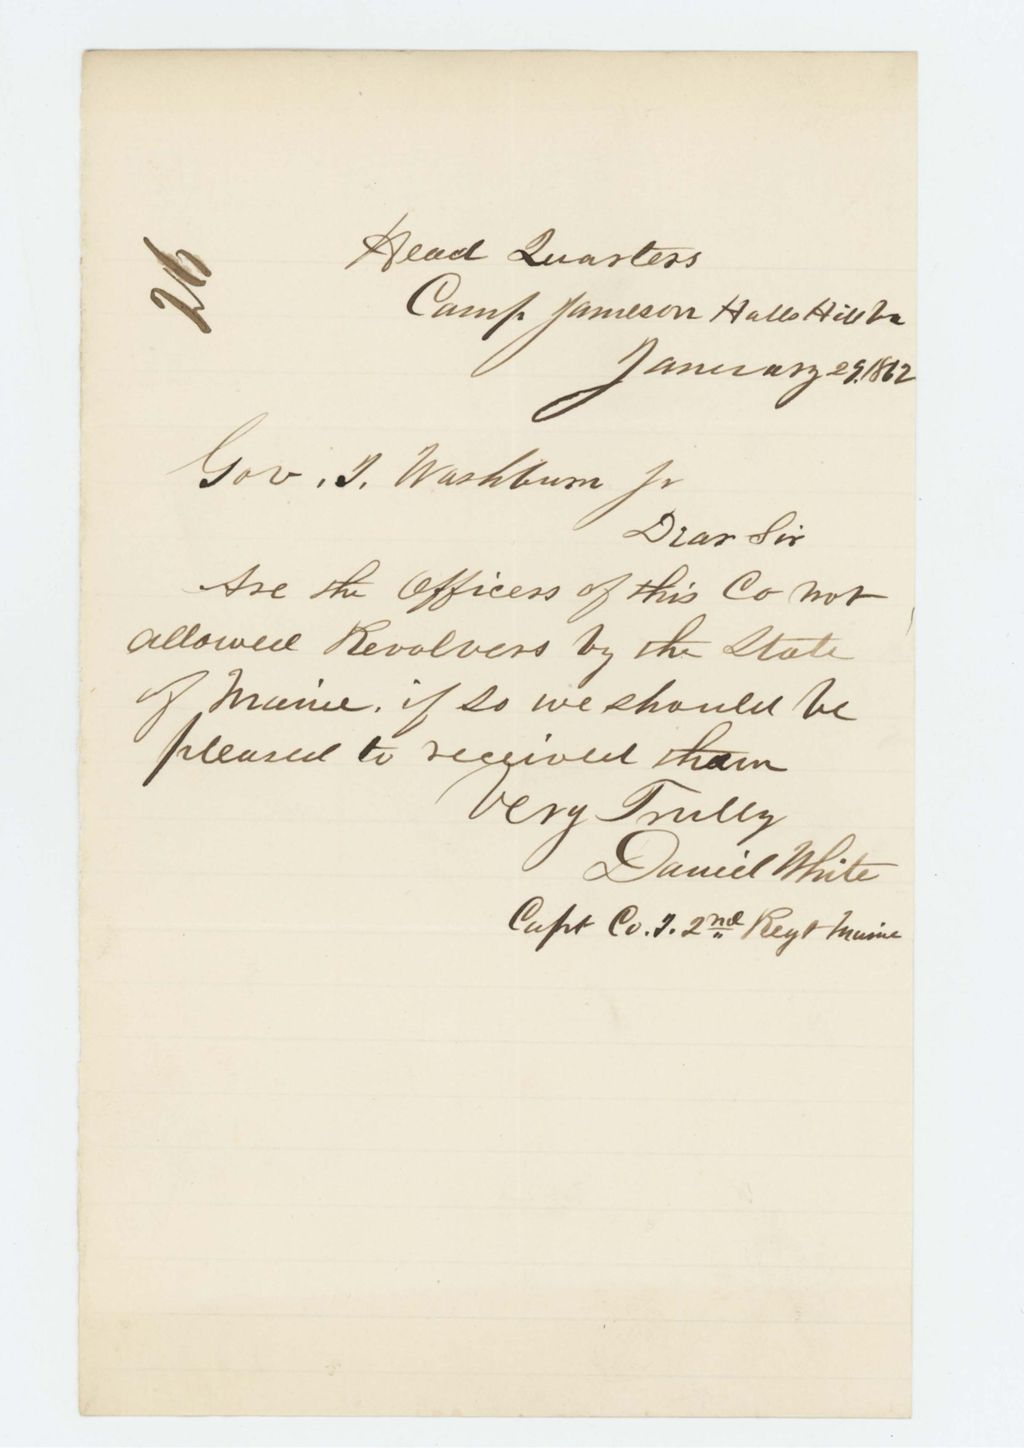 26
Head Quarters
Camp Jameson Halls Hill Va
January 29, 1862
Gov. I. Washburn Jr
Dear Sir
Are the Officers of this Co not
allowed Revolvers by the State
of Maine. if so we should be
pleased to received them
Very Trully
Daniel White
Capt Co. I. 2nd Regt Maine